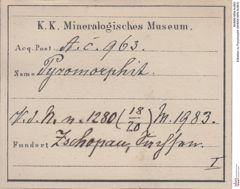 K. K. Mineralogisches Museum.
Acq. Post A. c. 963.
Name Pyromorphit.
V. d. N. n. 1280 (18/20) M. 1983.
Fundort Zschopau, Sachsen.
I